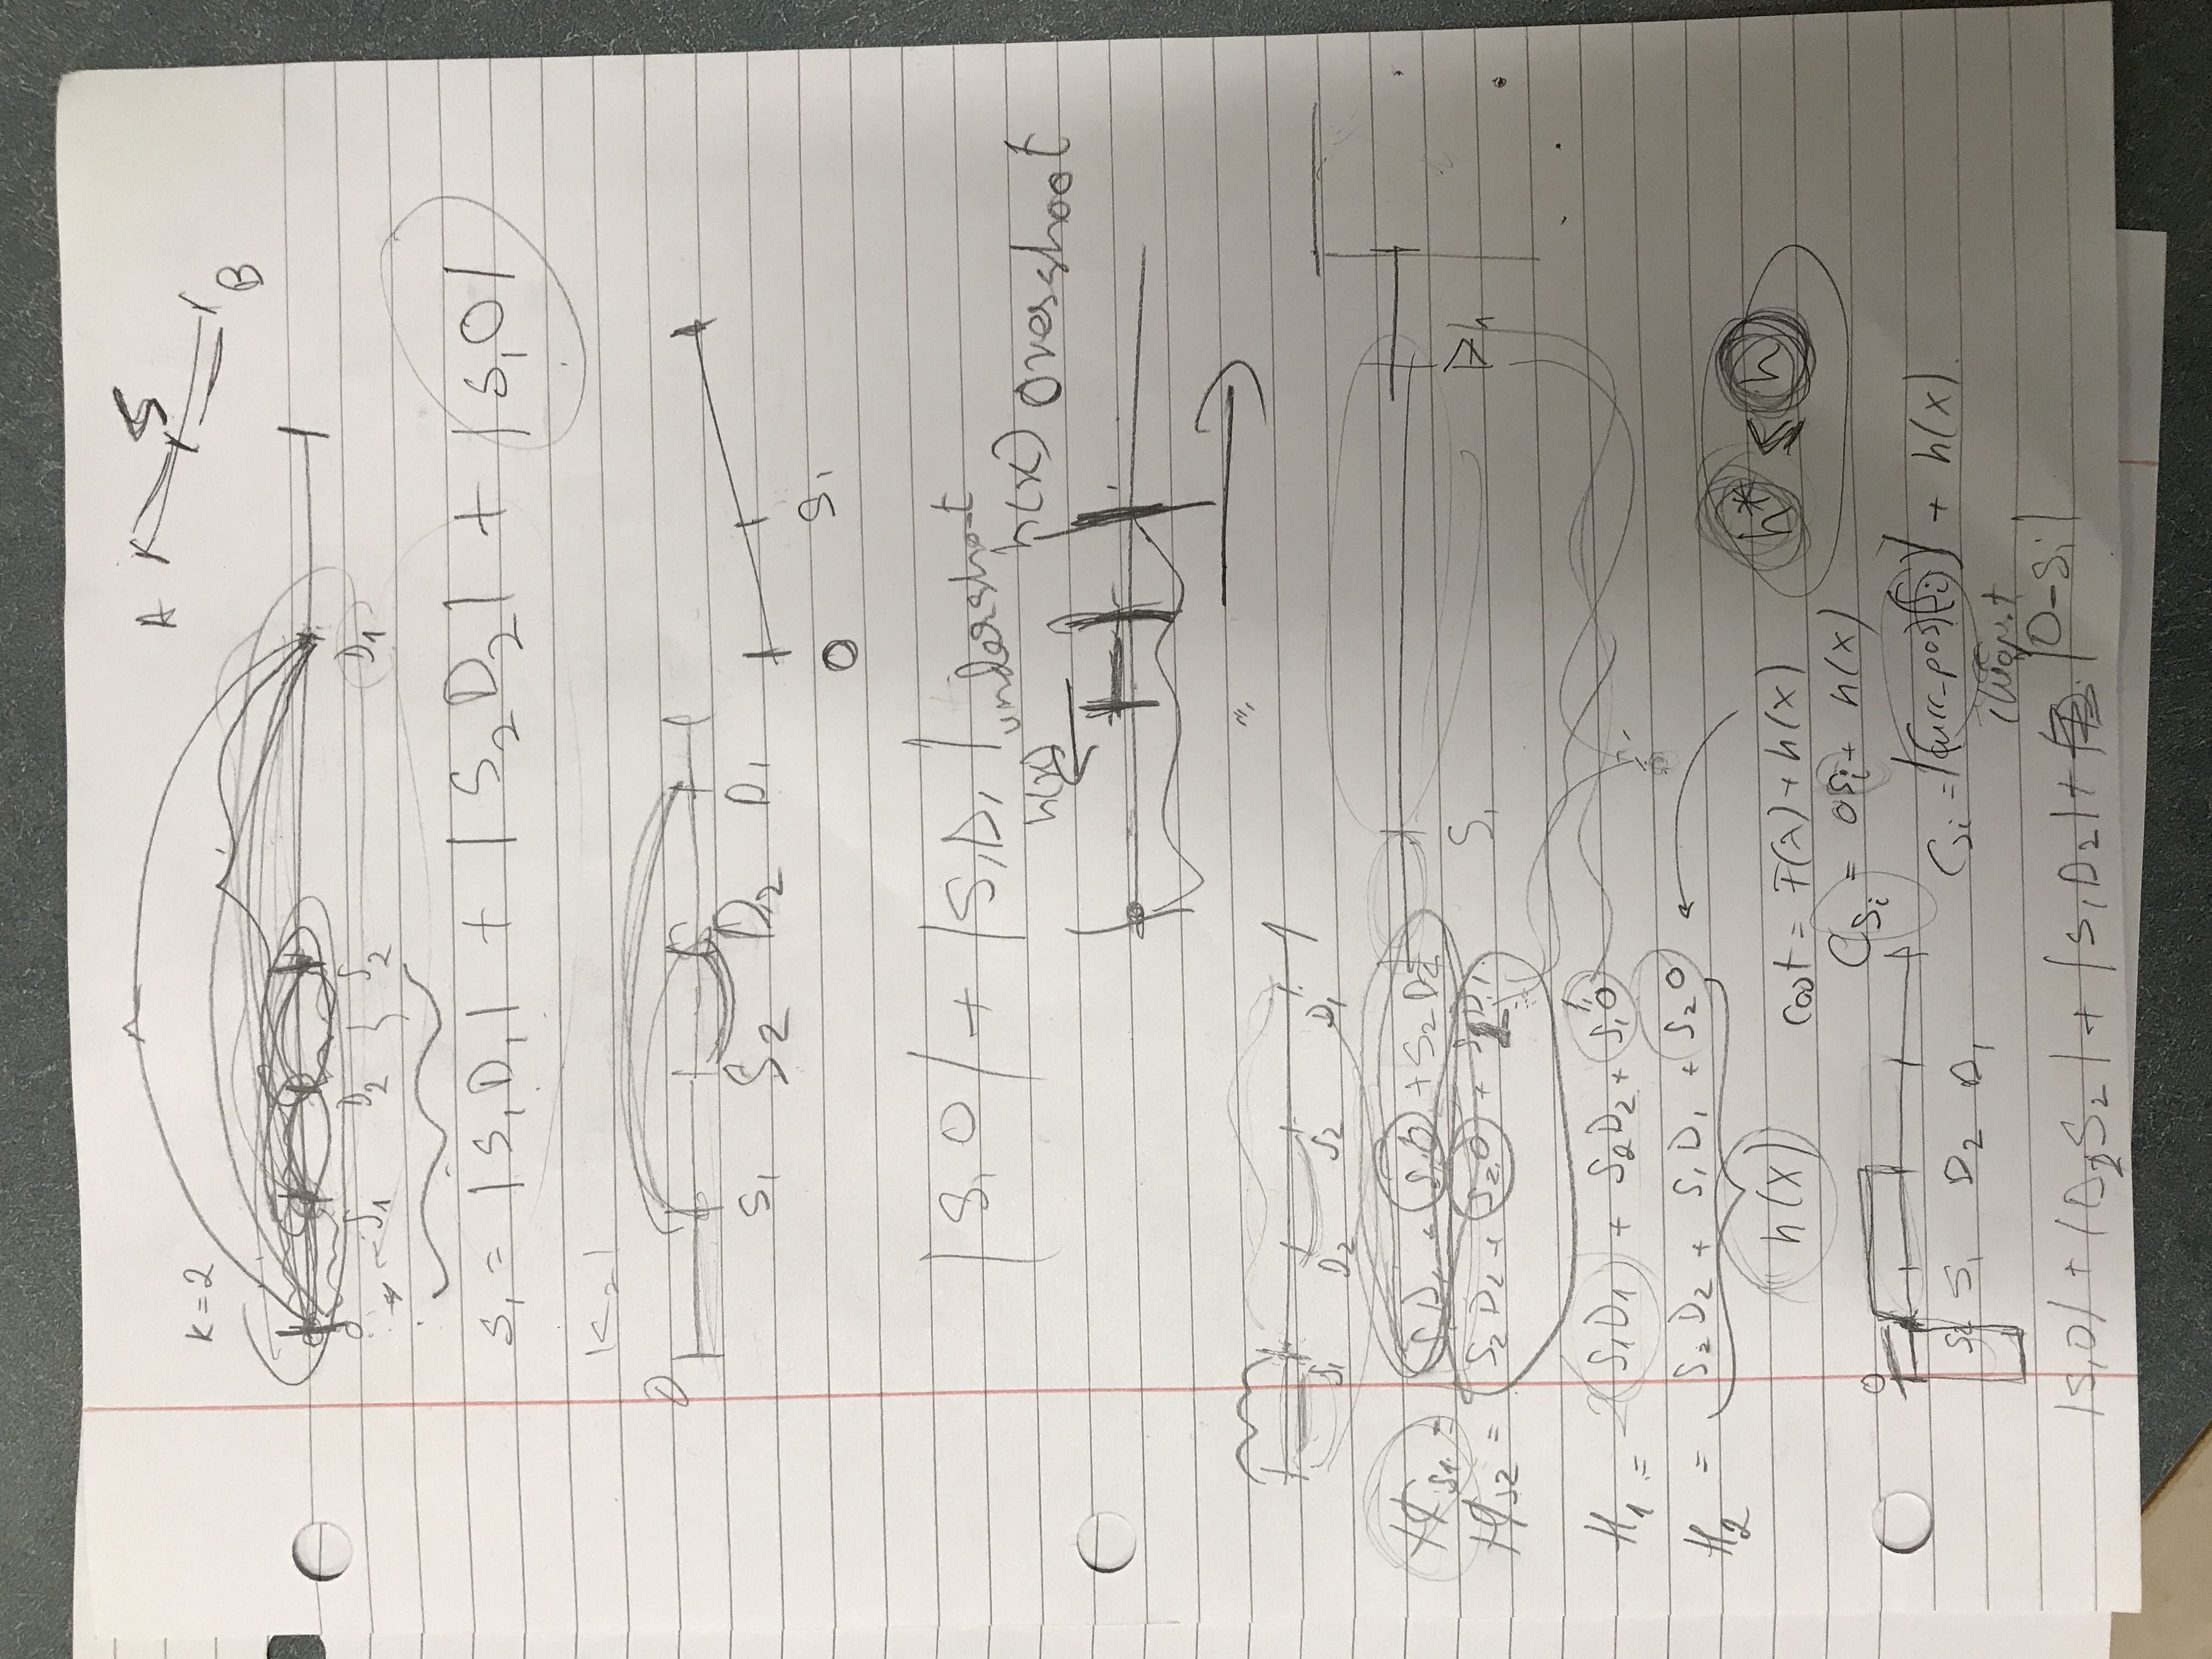 A S B
K=2
O S1 D2 S2 D1
S1 = |S1D1| + |S2D2| + |S1O|
K=1
O
S1 S2 D2 D1
O S1
|S1O| + |S1D1|
undershoot
h(x) h(x) overshoot
S1 D2 S2 D1
S1 = S1D1 + S1O + S2D2
S2 = S2D2 + S2O + S1D1
S1
H1 = S1D1 + S2D2 + S1O
H2 = S2D2 + S1D1 + S2O
h(x) cost = F(x) + h(x) h* ≤ h
CSi = OSi + h(x)
O
S2 S1 D2 D1
CSi = |(curr_pos)(Si)| + h(x).
|S1O| + |D2S2| + |S1D2| + |O-Si|